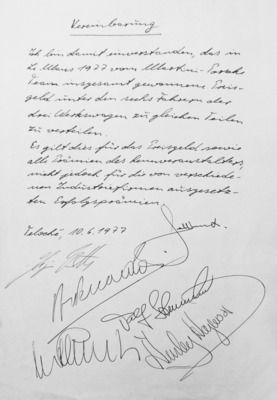 Vereinbarung
Ich bin damit einverstanden, das in
Le Mans 1977 vom Martini-Porsche
Team insgesamt gewonnene Preis-
geld unter den sechs Fahrern aller
drei Werkswagen zu gleichen Teilen
zu verteilen.
Es gilt dies für das Preisgeld sowie
alle Prämien des Rennveranstalters,
nicht jedoch für die von verschiede-
nen Industriefirmen ausgesetz-
ten Erfolgsprämien.
Teloché, 10.6.1977
Hurley Haywood